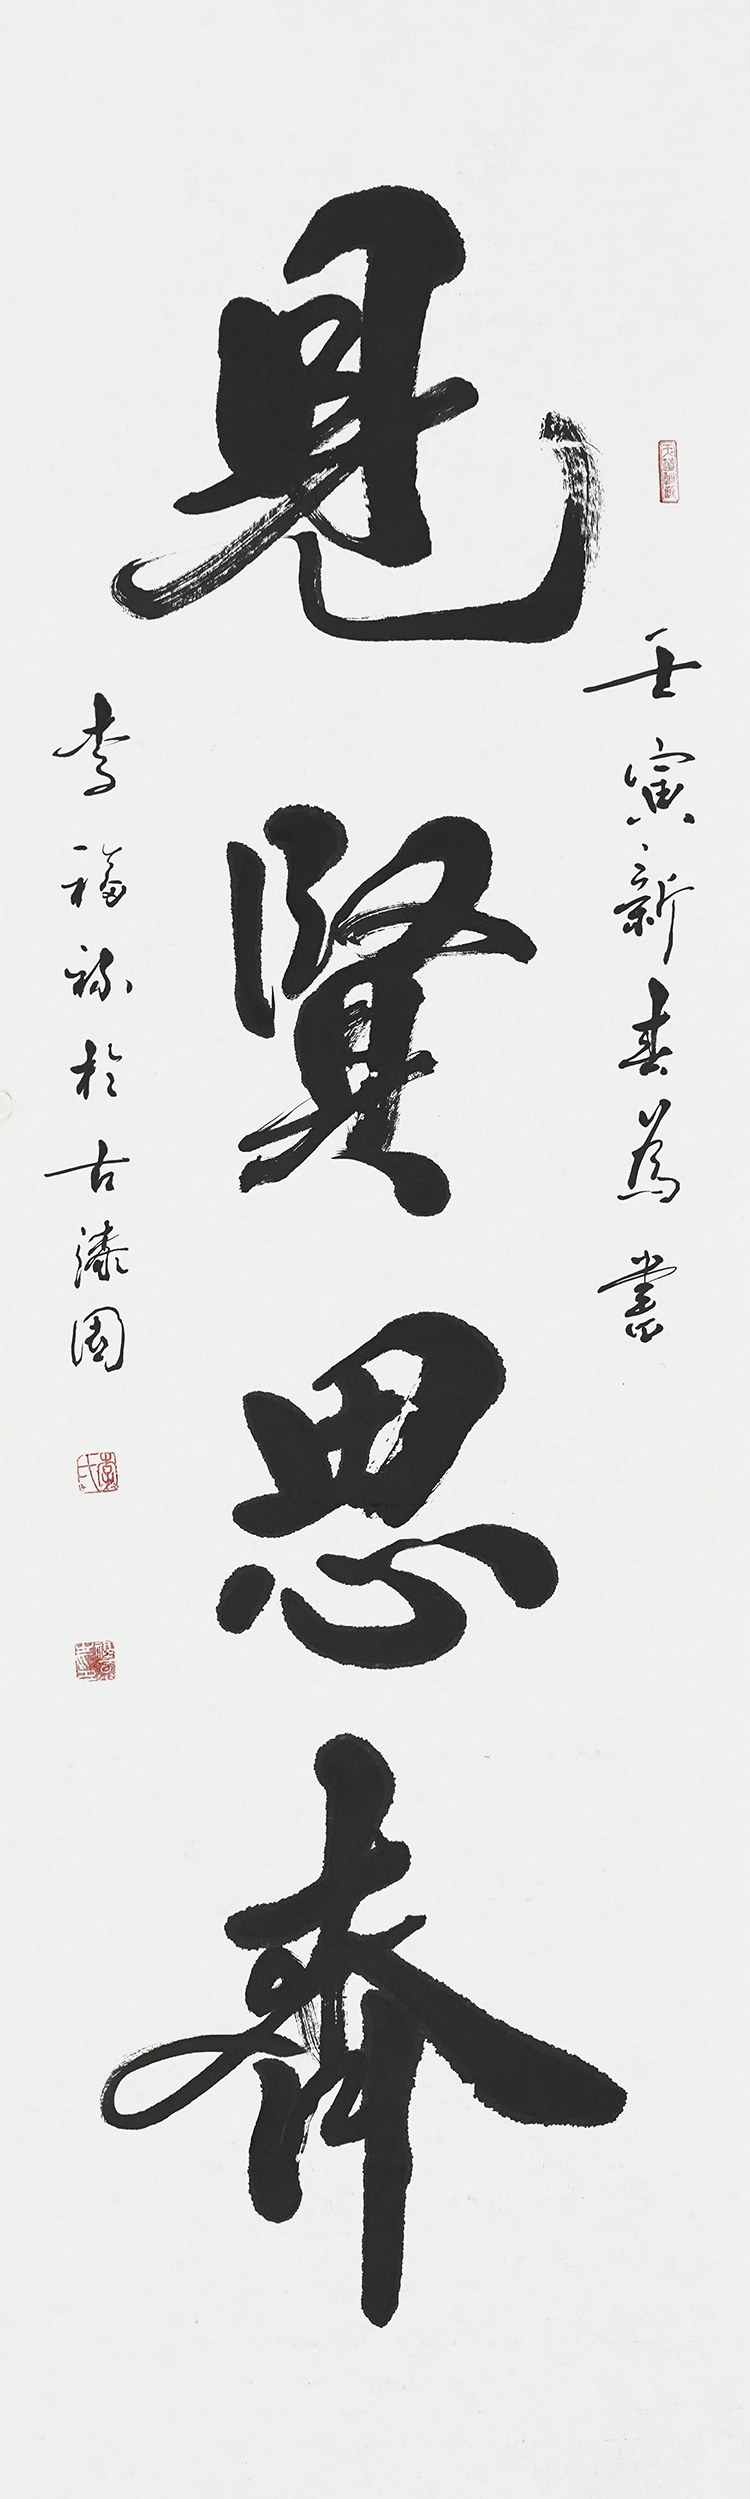 壬寅新春為書
見賢思齊
李福祿於古漆園
李氏